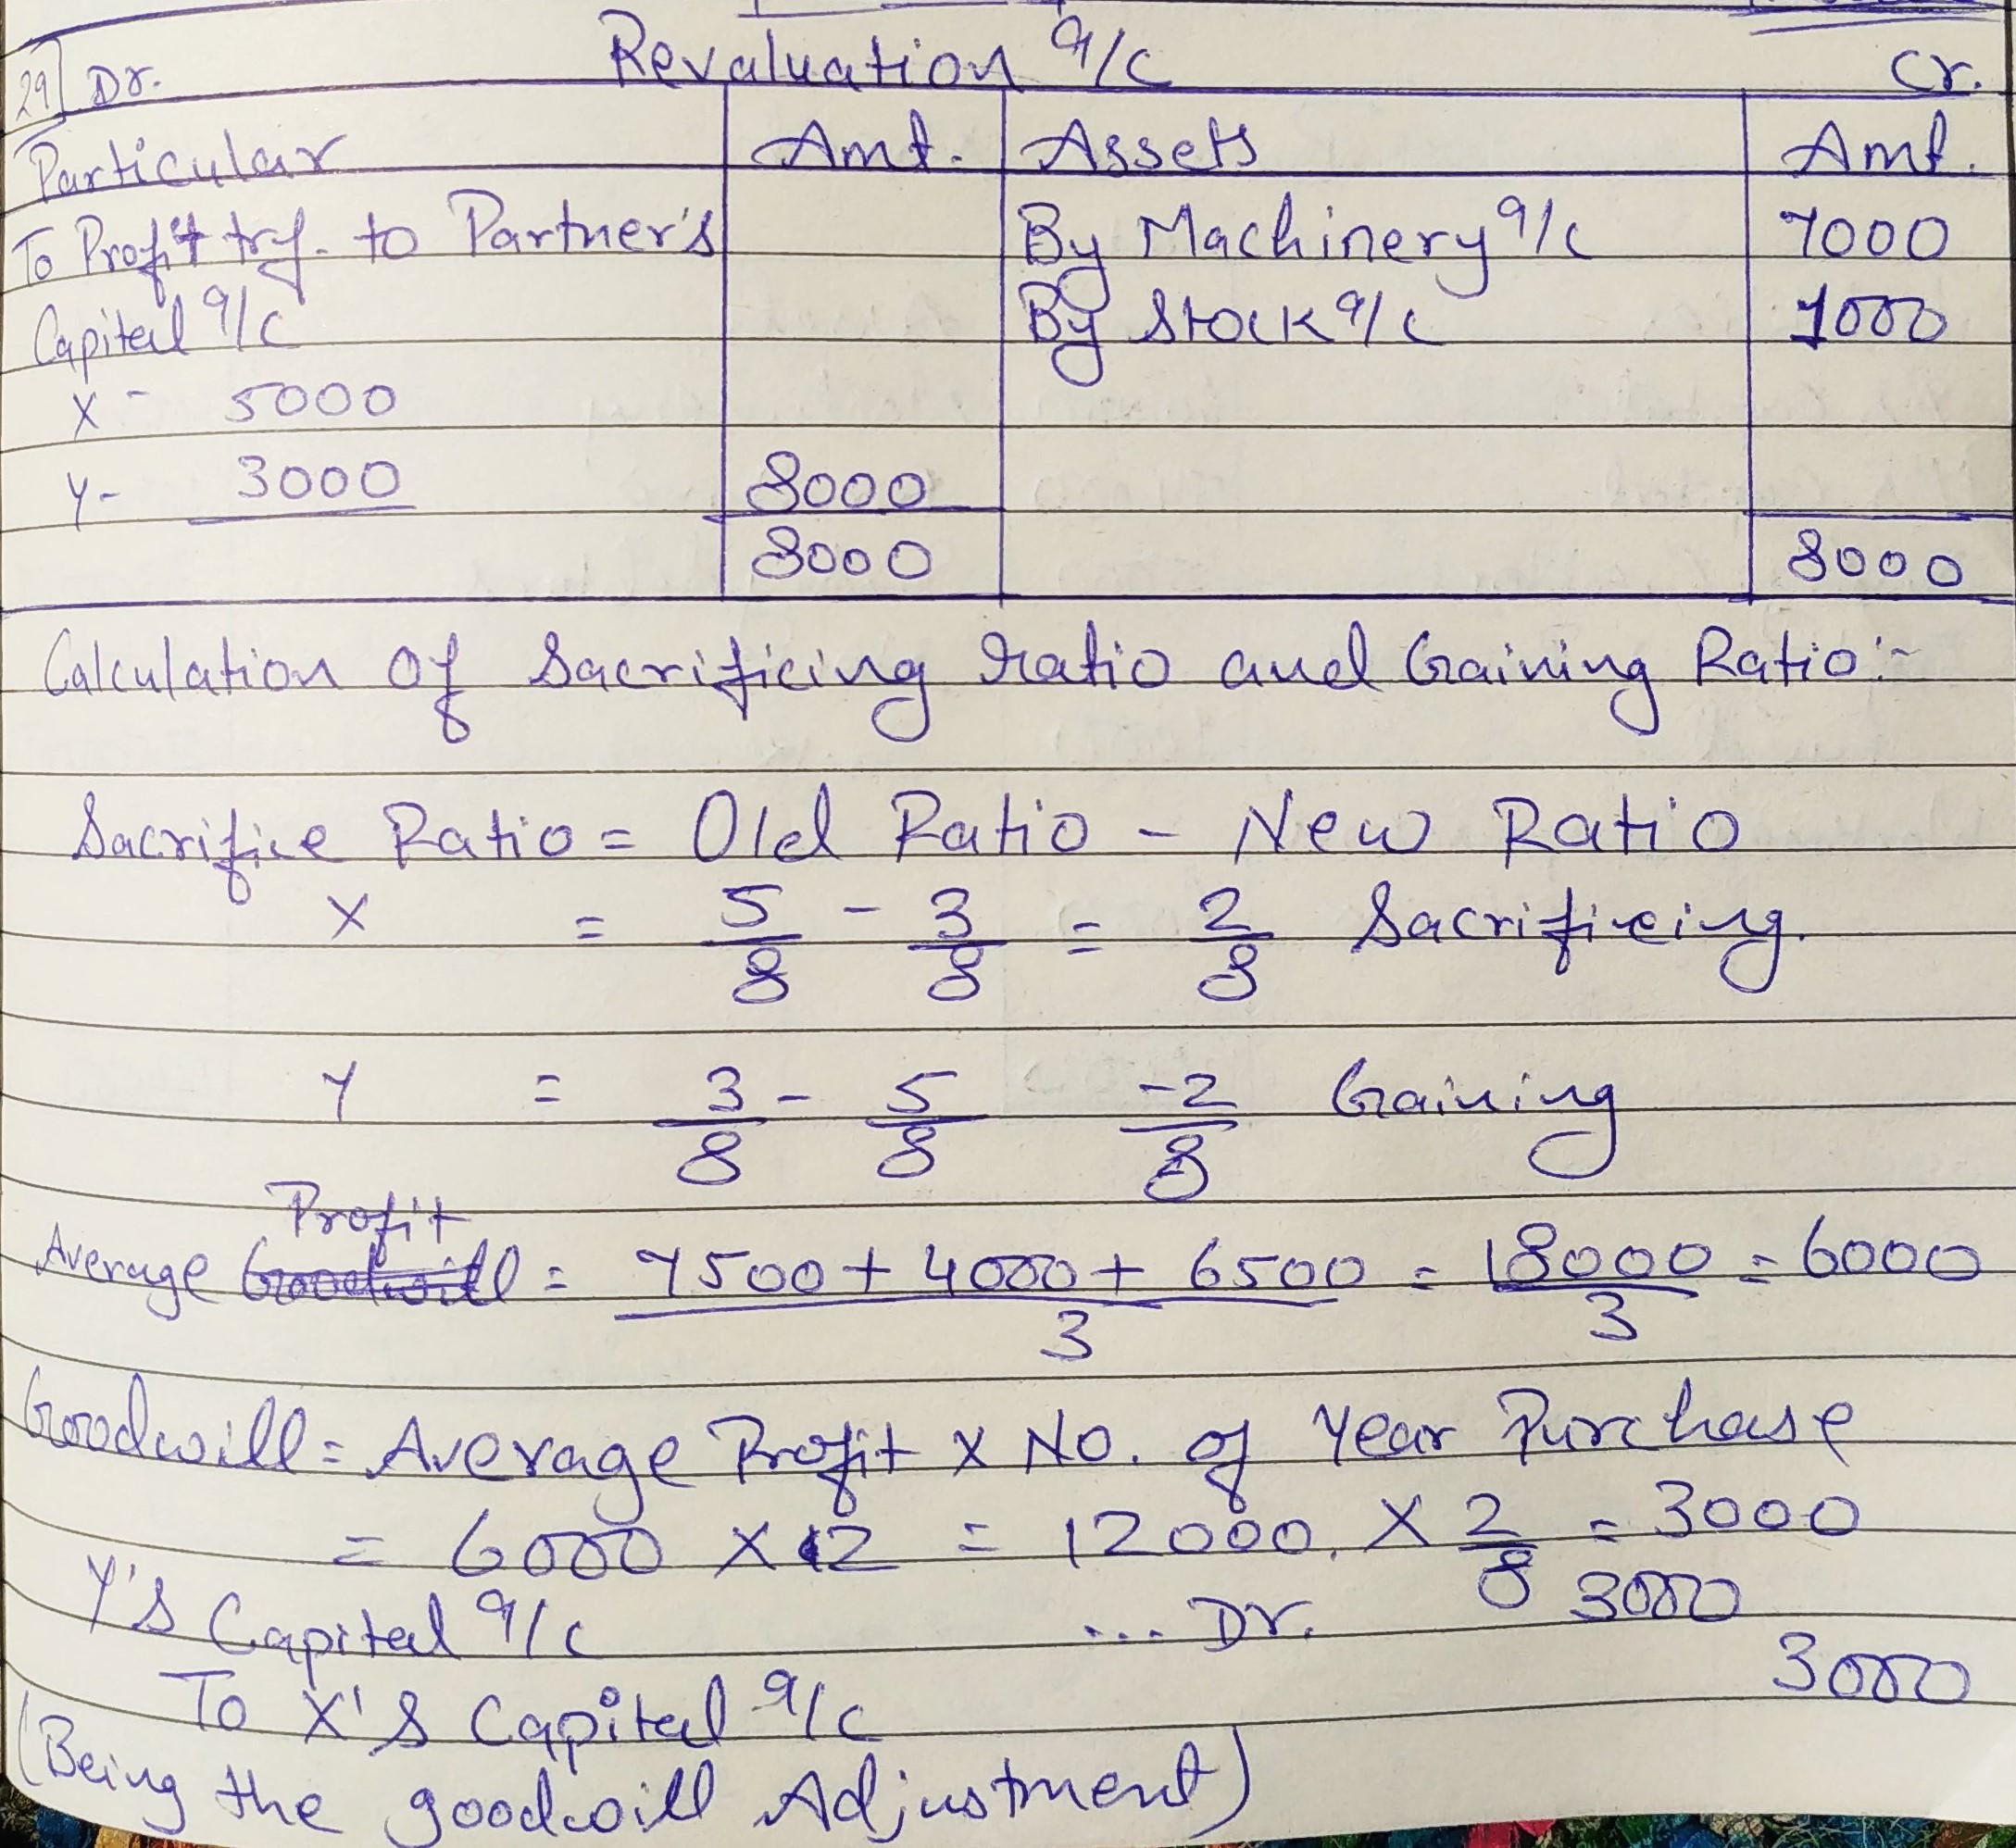 Revaluation a/c
29] Dr. Cr.
Particular Amt. Assets Amt.
To Profit trf. to Partner's By Machinery a/c 7000
Capital a/c By Stock a/c 1000
X - 5000
Y - 3000 8000
8000 8000
Calculation of Sacrificing ratio and Gaining Ratio:-
Sacrifice Ratio = Old Ratio - New Ratio
X = 5/8 - 3/8 = 2/8 Sacrificing.
Y = 3/8 - 5/8 -2/8 Gaining
Profit
Average Goodwill = 7500 + 4000 + 6500 / 3 = 18000/3 = 6000
Goodwill = Average Profit x No. of Year Purchase
= 6000 x 2 = 12000. x 2/8 = 3000
Y's Capital a/c ... Dr. 3000
To X's Capital a/c 3000
(Being the goodwill Adjustment)